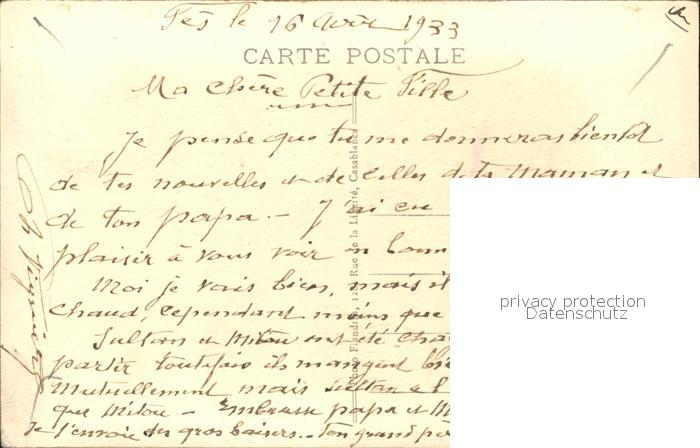 Fès le 16 Avril 1933
CARTE POSTALE
Ma Chère Petite Fille
Je pense que tu me donneras bientôt
de tes nouvelles et de celles de ta Maman et
de ton papa. - J'ai eu
plaisir à vous voir en bonn
Moi je vais bien, mais il
chaud, cependant moins que
Sultan et Mitou ont été cha
partir toutefois ils mangent bie
Mutuellement mais Sultan a l
que Mitou - Embrasse papa et M
Je t'envoie des gros baisers.. Ton grand pèr
Photo Flandrin, Rue de la Liberté, Casablanca
privacy protection
Datenschutz